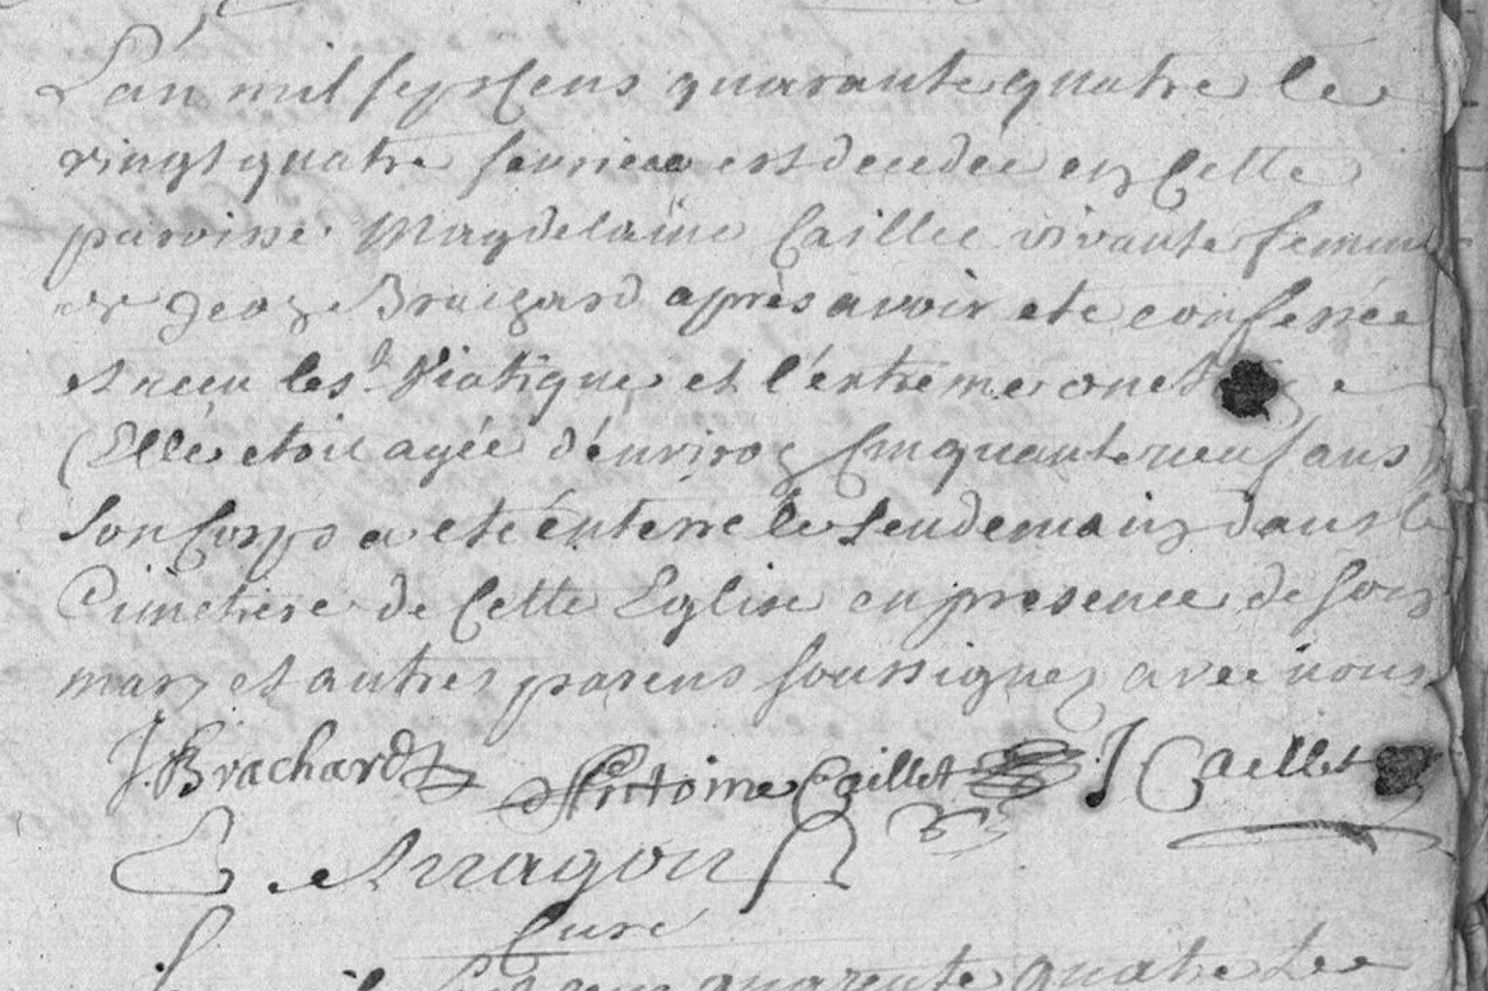 L'an mil sept Cens quarante quatre le
vingt quatre fevrier est decedée en Cette
paroisse Magdelaine Caillet vivante femme
de Jean Braichard après avoir eté confessée
et reçu le St Viatique et l'extreme onct e
Elle etoit agée d'environ Cinquante neuf ans
Son Corps a eté énterré le Lendemain dans le
Cimetiere de Cette Eglise en presence de son
mary et autres parens soussignez avec nous
J. Brachard Antoine Caillet J Caillet
Arragon
Curé
quarente quatre Le